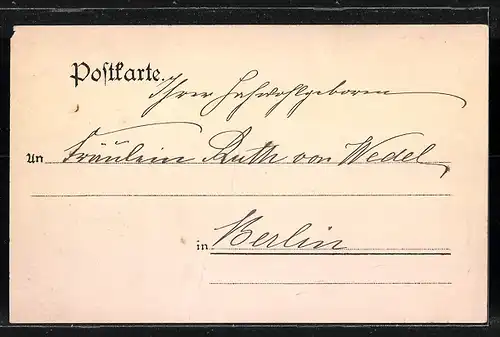 Postkarte.
Ihrer Hochwohlgeboren
An Fräulein Ruth von Wedel
in Berlin